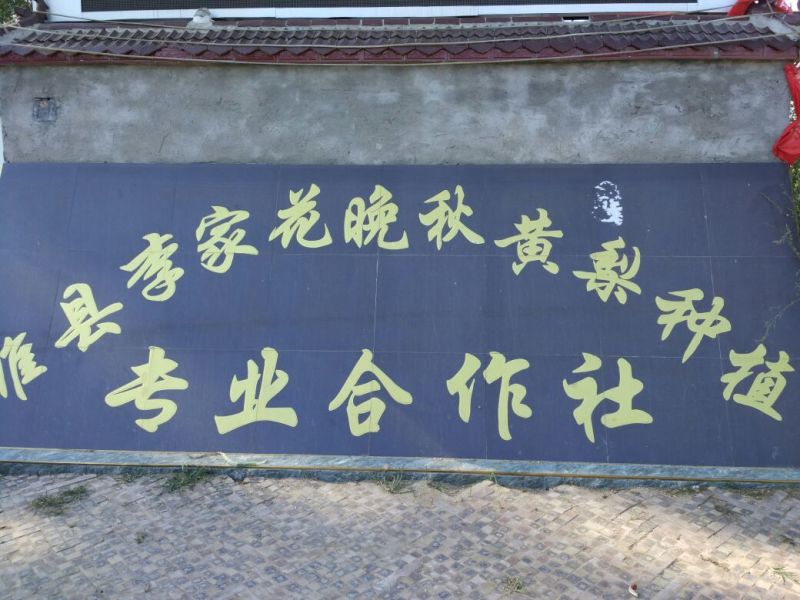 睢县李家花晚秋黄梨种植
专业合作社